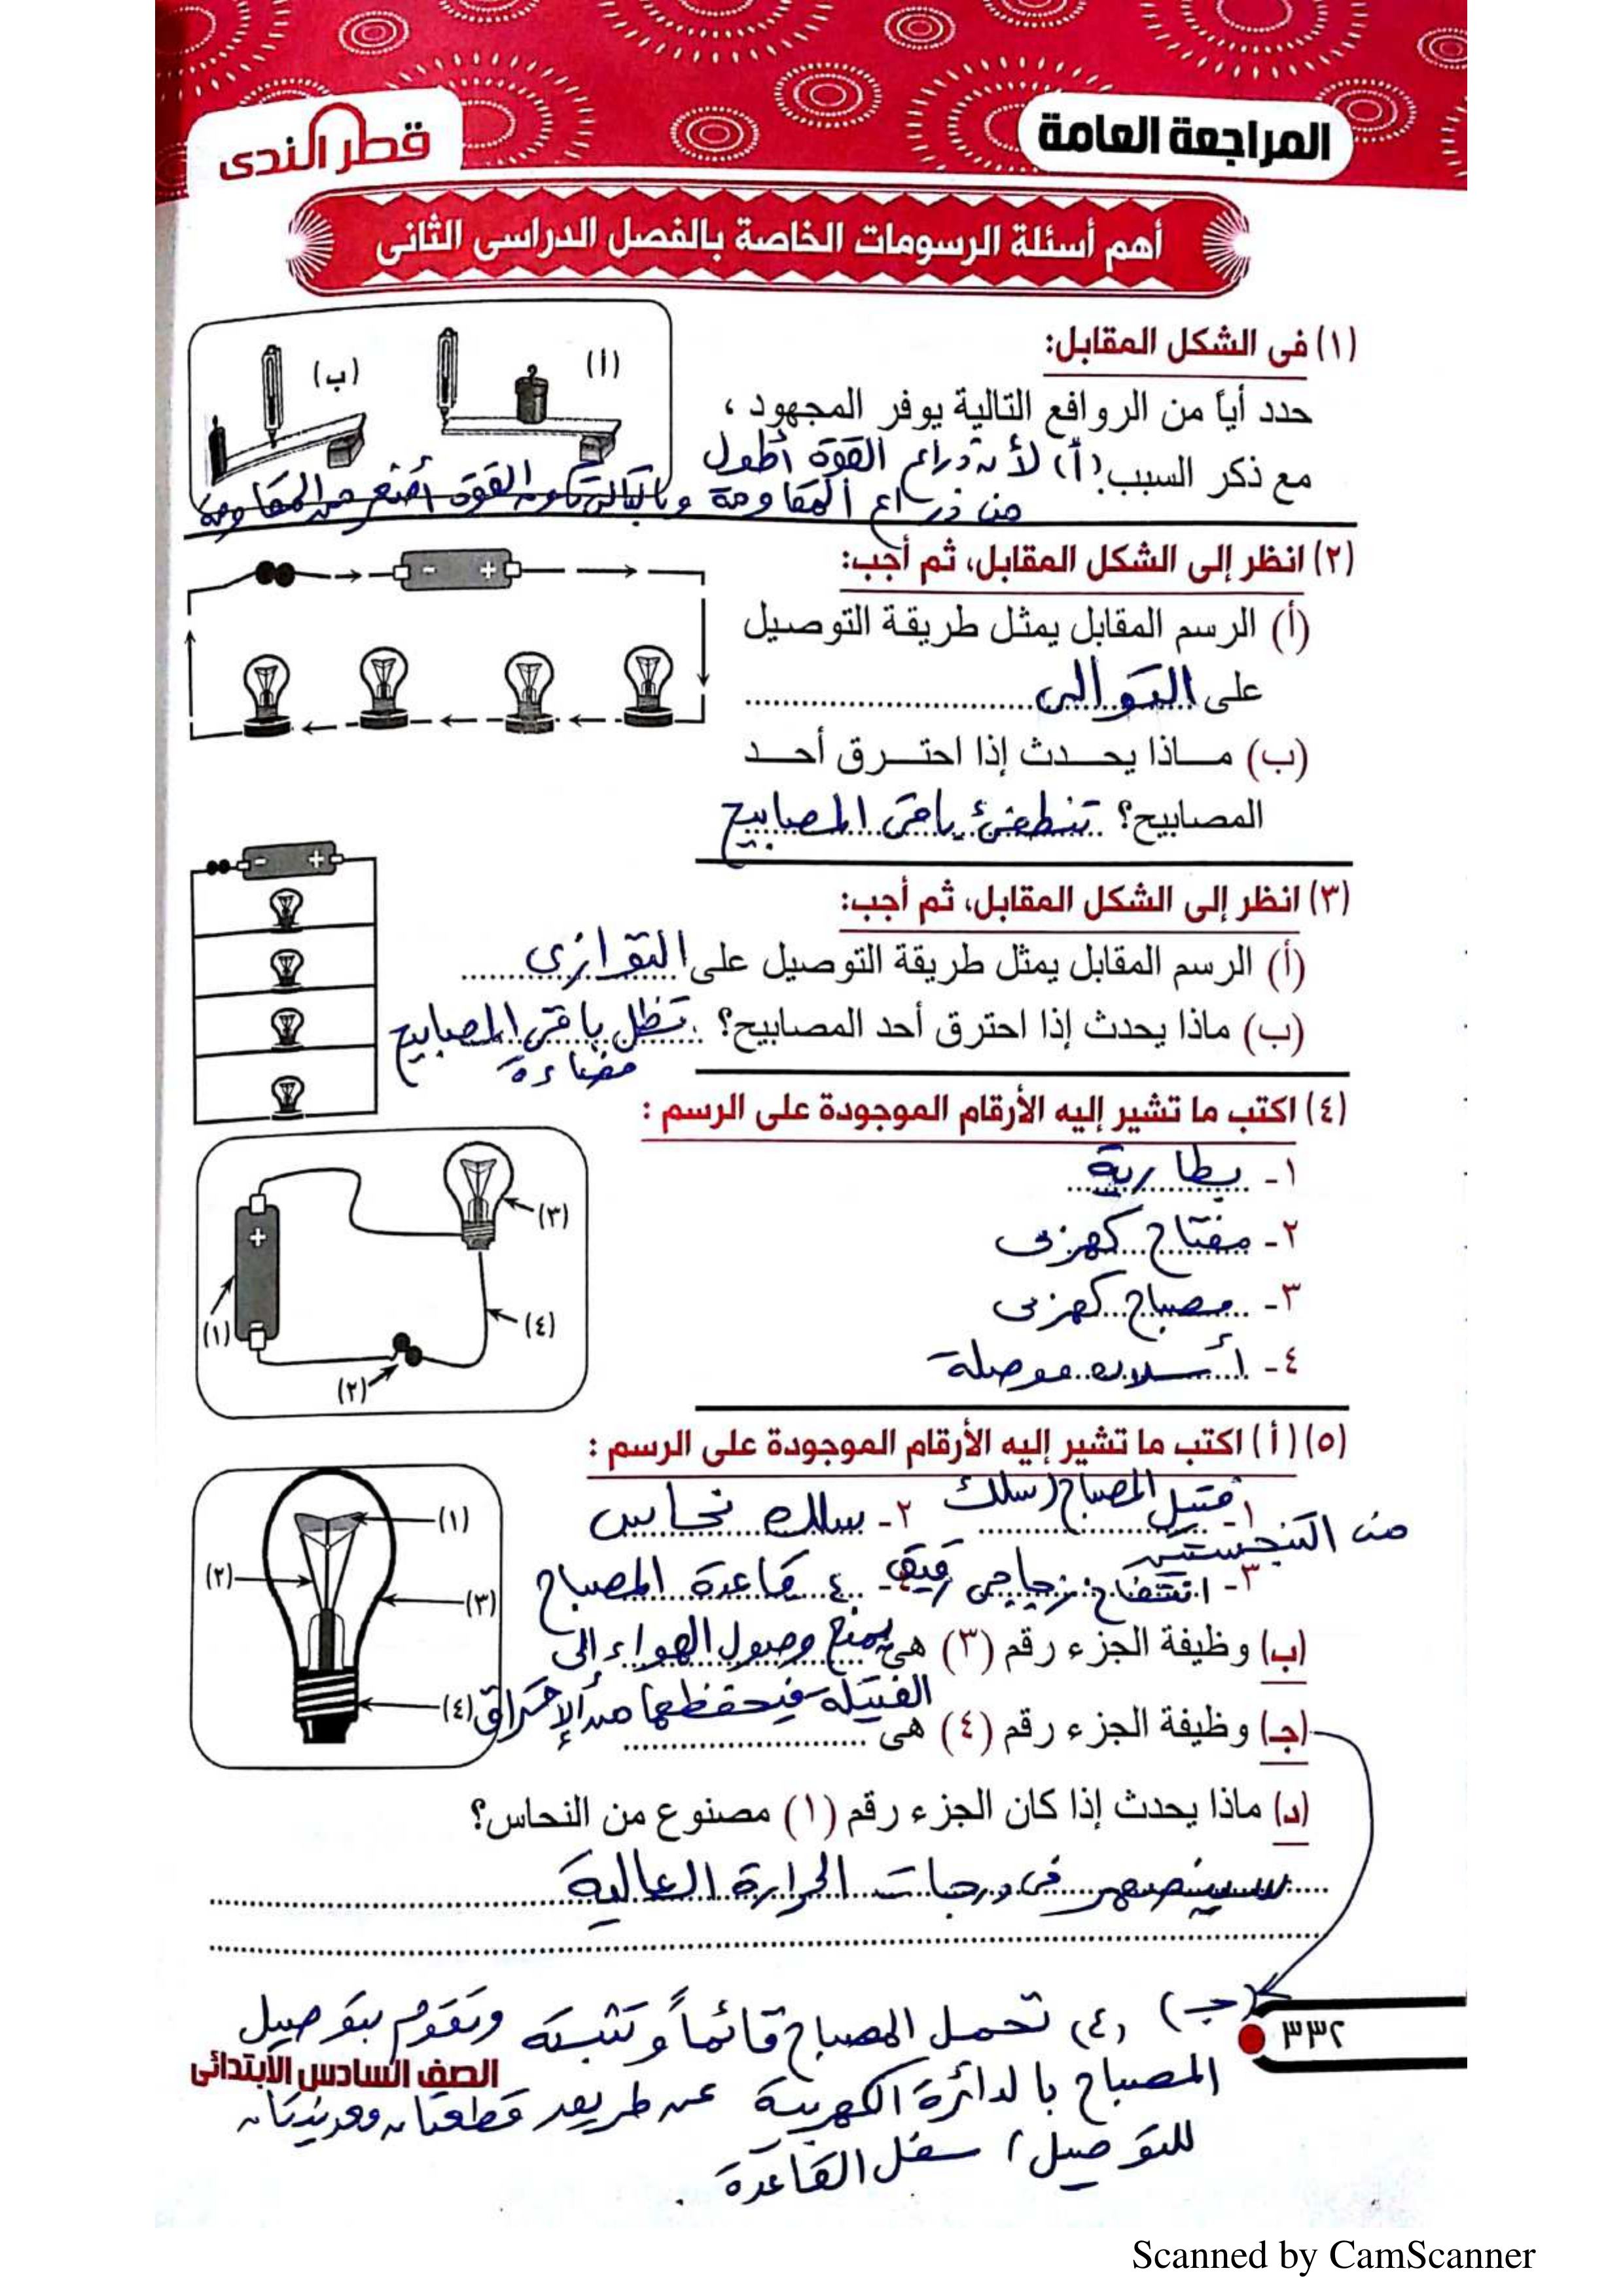 المراجعة العامة
قطر الندى
أهم أسئلة الرسومات الخاصة بالفصل الدراسى الثانى
(١) فى الشكل المقابل:
(أ)
(ب)
حدد أياً من الروافع التالية يوفر المجهود ،
مع ذكر السبب؟ (أ) لأن ذراع القوة أطول
من ذراع المقاومة وبالتالى تكون القوة أصغر من المقاومة
(٢) انظر إلى الشكل المقابل، ثم أجب:
- +
(أ) الرسم المقابل يمثل طريقة التوصيل
على التوالى
(ب) مــاذا يحــدث إذا احتــرق أحــد
المصابيح؟ تنطفئ باقى المصابيح
- +
(٣) انظر إلى الشكل المقابل، ثم أجب:
(أ) الرسم المقابل يمثل طريقة التوصيل على التوازى
(ب) ماذا يحدث إذا احترق أحد المصابيح؟ تظل باقى المصابيح
مضاءة
(٤) اكتب ما تشير إليه الأرقام الموجودة على الرسم :
١- بطارية
٢- مفتاح كهربى
٣- مصباح كهربى
٤- أسلاك موصلة
+
(١)
(٢)
(٣)
(٤)
(٥) (أ) اكتب ما تشير إليه الأرقام الموجودة على الرسم :
١- فتيل المصباح (سلك ٢- سلك نحاس
من التنجستين
٣- انتفاخ زجاجى رقيق ٤- قاعدة المصباح
(١)
(٢)
(٣)
(٤)
(ب) وظيفة الجزء رقم (٣) هى يمنع وصول الهواء إلى
الفتيلة فيحفظها من الإحتراق
(جـ) وظيفة الجزء رقم (٤) هى
(د) ماذا يحدث إذا كان الجزء رقم (١) مصنوع من النحاس؟
سينصهر فى درجات الحرارة العالية
(جـ) (٤) تحمل المصباح قائماً وتثبته وتقوم بتوصيل
المصباح بالدائرة الكهربية عن طريق قطعتان معدنيتان
للتوصيل أسفل القاعدة
٣٣٢
الصف السادس الابتدائى
Scanned by CamScanner